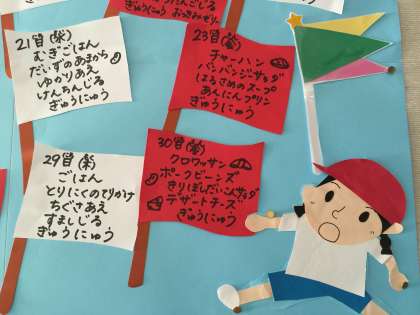 21日(水)
むぎごはん
だいずのあまから
ゆかりあえ
けんちんじる
ぎゅうにゅう
23日(金)
チャーハン
バンバンジーサラダ
はるさめのスープ
あんにんプリン
ぎゅうにゅう
29日(木)
ごはん
とりにくのてりかけ
ちぐさあえ
すましじる
ぎゅうにゅう
30日(金)
クロワッサン
ポークビーンズ
きりぼしだいこんサラダ
デザートチーズ
ぎゅうにゅう